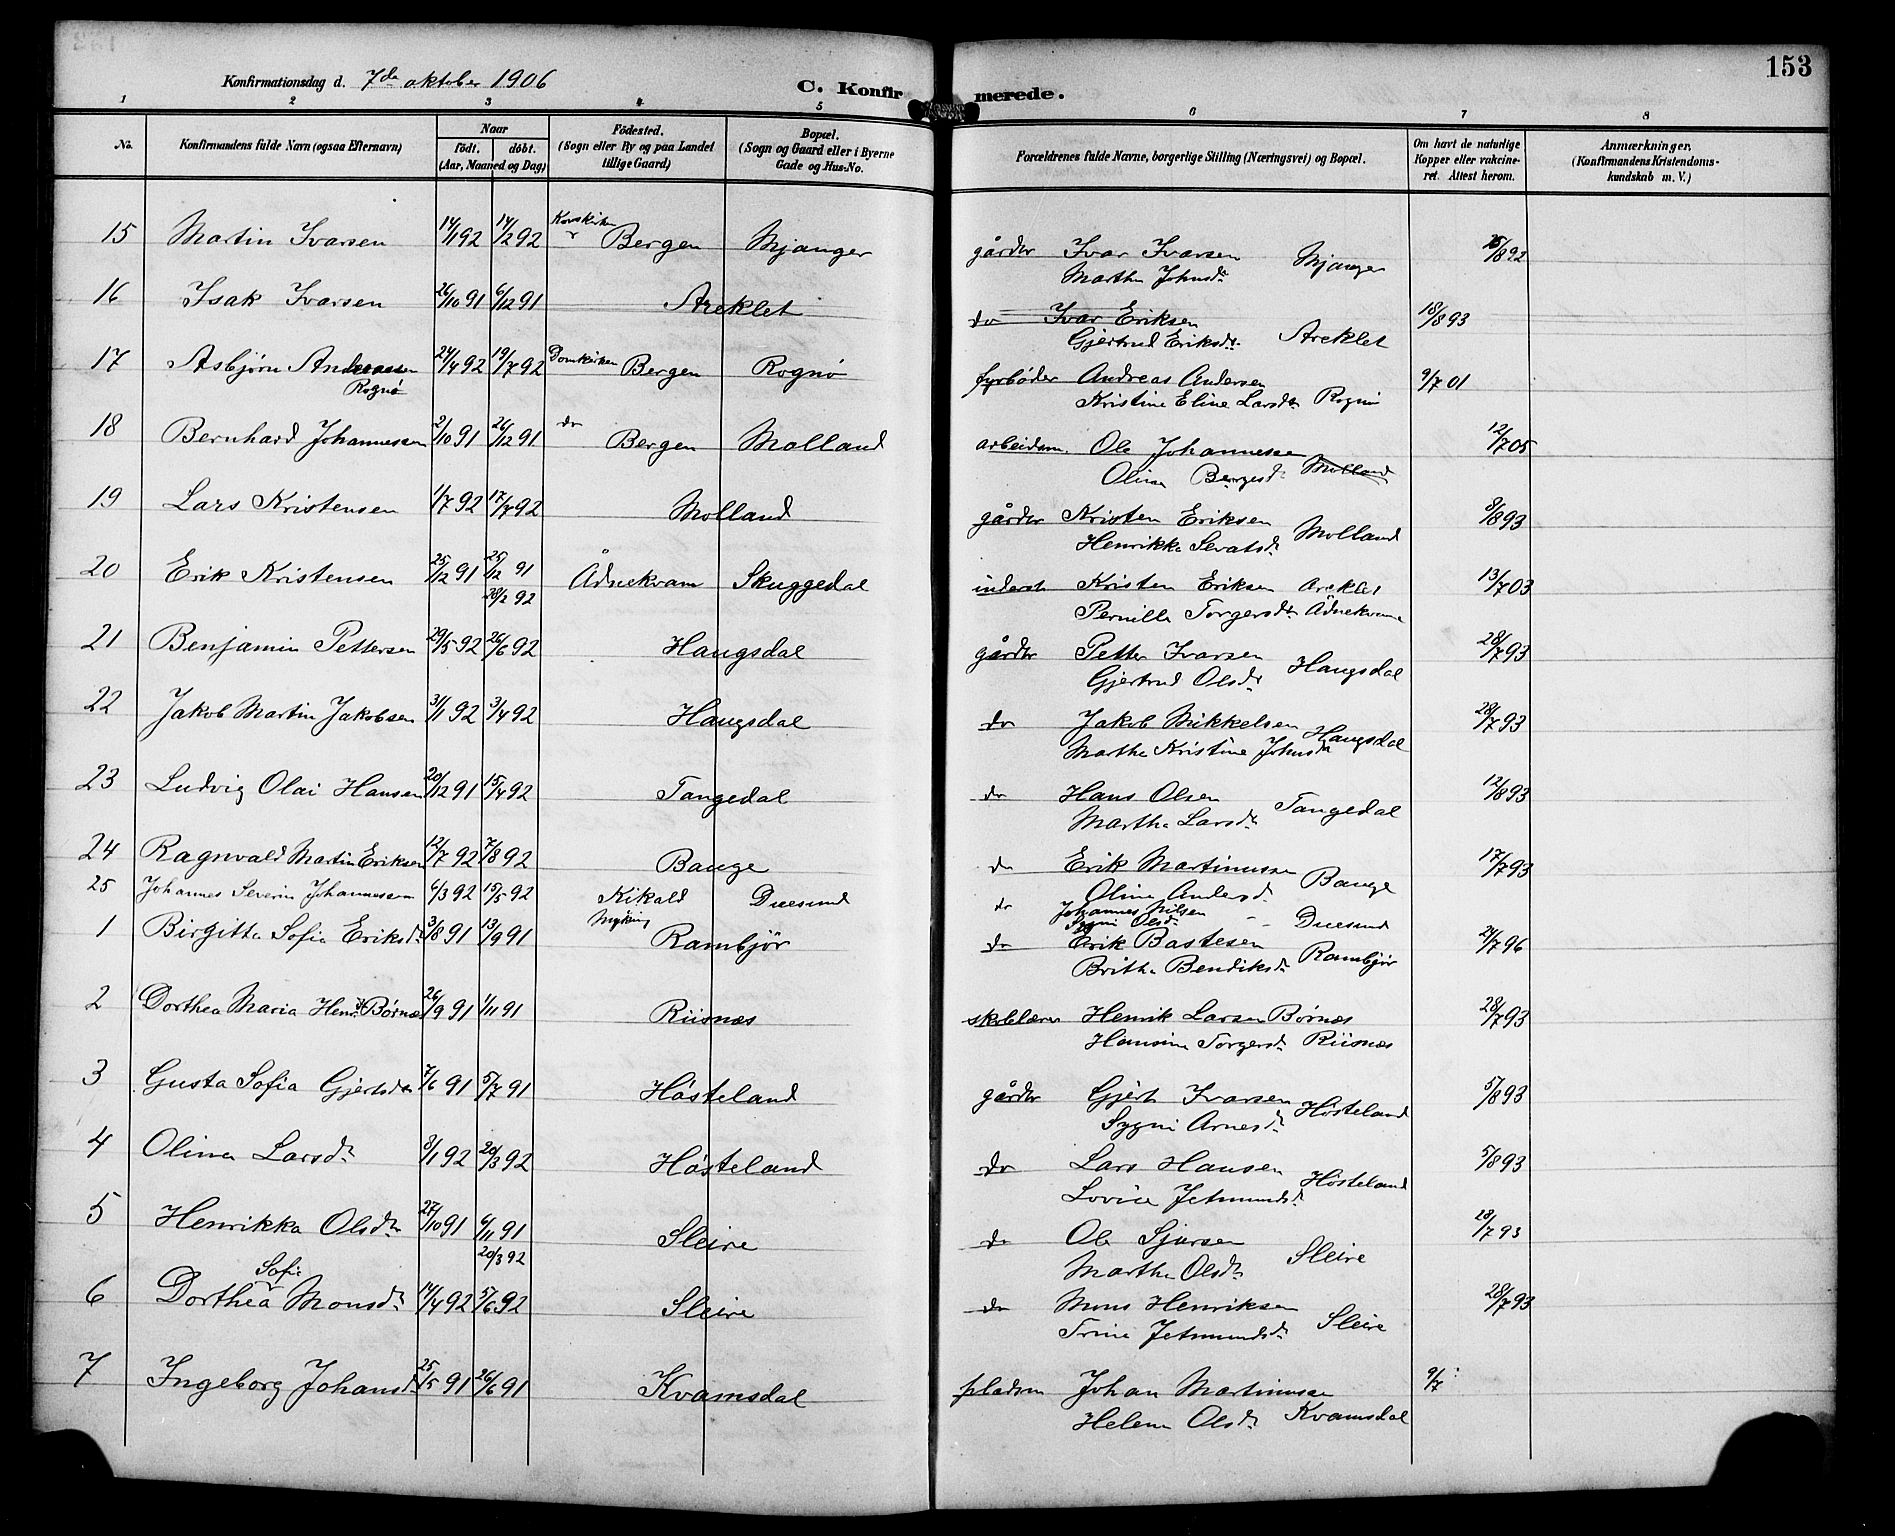 153
Konfirmationsdag d. 7de oktober 1906
C. Konfirmerede.
1 2 3 4 5 6 7 8
No. Konfirmandens fulde Navn (ogsaa Efternavn) Naar født. døbt. (Aar, Maaned og Dag) Fødested. (Sogn eller By og paa Landet tillige Gaard) Bopæl. (Sogn og Gaard eller i Byerne Gade og Hus-No. Forældrenes fulde Navne, borgerlige Stilling (Næringsvei) og Bopæl. Om havt de naturlige Kopper eller vakcineret. Attest herom. Anmærkninger. (Konfirmandens Kristendomskundskab m. V.)
15 Martin Ivarsen 14/1 92 14/2 92 Korskirken Bergen Mjanger gårdbr Ivar Ivarsen Mjanger 25/8 92
Martha Johnsdr
16 Isak Ivarsen 26/10 91 6/12 91 Areklet do Ivar Eriksen 18/8 93
Gjertrud Eriksdr. Areklet
17 Asbjørn Andreassen 24/4 92 19/7 92 Domkirken Bergen Rognø fyrbøder Andreas Andersen 9/7 01
Rognø Kristine Eline Larsdr Rognø
18 Bernhard Johannessen 2/10 91 26/12 91 do Bergen Molland arbeidsm. Ole Johannessen 12/7 05
Olina Børgesdr Molland
19 Lars Kristensen 1/7 92 17/7 92 Molland gårdbr Kristen Eriksen Molland 3/8 93
Henrikke Sevatsdr
20 Erik Kristensen 25/12 91 25/12 91 Ådnekvam Skuggedal inderst Kristen Eriksen Areklet 13/7 03
28/2 92 Pernille Torgersdr Ådnekvam
21 Benjamin Pettersen 29/5 92 26/6 92 Haugsdal gårdbr Petter Ivarsen Haugsdal 28/7 93
Gjertrud Olsdr
22 Jakob Martin Jakobsen 3/1 92 3/4 92 Haugsdal do Jakob Mikkelsen Haugsdal 28/7 93
Martha Kristine Johnsdr
23 Ludvig Olai Hansen 20/12 91 15/4 92 Tangedal do Hans Olsen Tangedal 12/8 93
Martha Larsdr
24 Ragnvald Martin Eriksen 12/7 92 7/8 92 Bauge do Erik Martinussen Bauge 17/7 93
Oline Andersdr
25 Johannes Severin Johannessen 6/3 92 15/5 92 Kikald Duesund do Johannes Nilsen Duesund
Myking Sygni Olsdr
1 Birgitte Sofie Eriksdr 3/8 91 13/9 91 Rambjør do Erik Bastesen Rambjør 24/7 96
Brithe Bendiksdr
2 Dorthea Maria Henrdr Børnæs 26/9 91 1/11 91 Riisnæs skolelærer Henrik Larsen Børnæs 28/7 93
Hansine Torgersdr Riisnæs
3 Gusta Sofia Gjertsdr 7/6 91 5/7 91 Høsteland gårdbr Gjert Ivarsen Høsteland 5/8 93
Sygni Arnesdr
4 Olina Larsdr 8/1 92 20/3 92 Høsteland do Lars Hansen Høsteland 5/8 93
Lovise Jetmundsdr
5 Henrikka Olsdr 27/10 91 6/11 91 Sleire do Ole Sjursen Sleire 28/7 93
20/3 92 Marthe Olsdr
6 Dorthea Sofie Monsdr 14/4 92 5/6 92 Sleire do Mons Henriksen Sleire 28/7 93
Trine Jetmundsdr
7 Ingeborg Johansdr 25/5 91 26/6 91 Kvamsdal pladsm Johan Martinussen 9/7
Helene Olsdr Kvamsdal